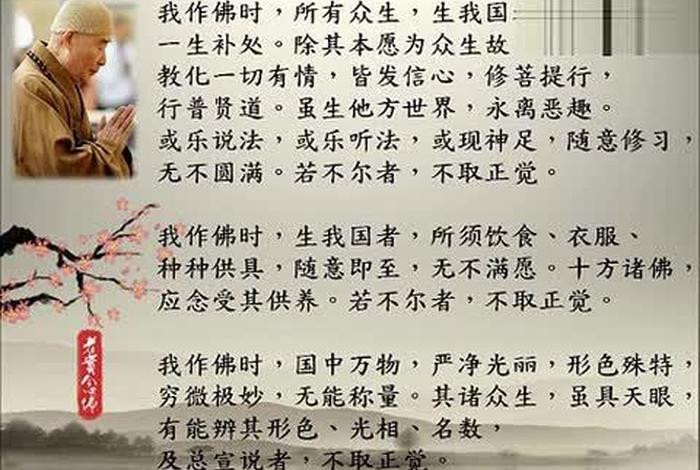 我作佛时，所有众生，生我国
一生补处。除其本愿为众生故
教化一切有情，皆发信心，修菩提行，
行普贤道。虽生他方世界，永离恶趣。
或乐说法，或乐听法，或现神足，随意修习，
无不圆满。若不尔者，不取正觉。
我作佛时，生我国者，所须饮食、衣服、
种种供具，随意即至，无不满愿。十方诸佛，
应念受其供养。若不尔者，不取正觉。
我作佛时，国中万物，严净光丽，形色殊特，
穷微极妙，无能称量。其诸众生，虽具天眼，
有能辨其形色、光相、名数，
及总宣说者，不取正觉。
老实念佛